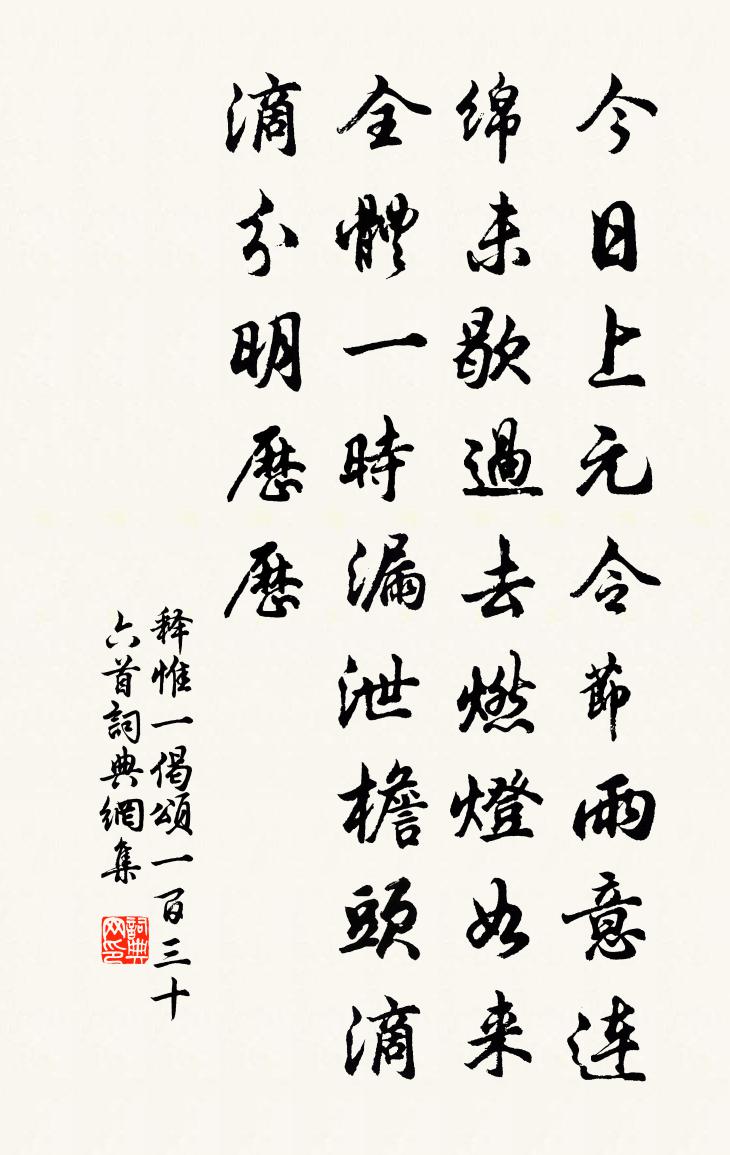 今日上元令節雨意连
绵未歇過去燃燈如来
全體一時漏泄檐頭滴
滴分明歷歷
释惟一偈頌一百三十
六首詞典網集
詞典网印